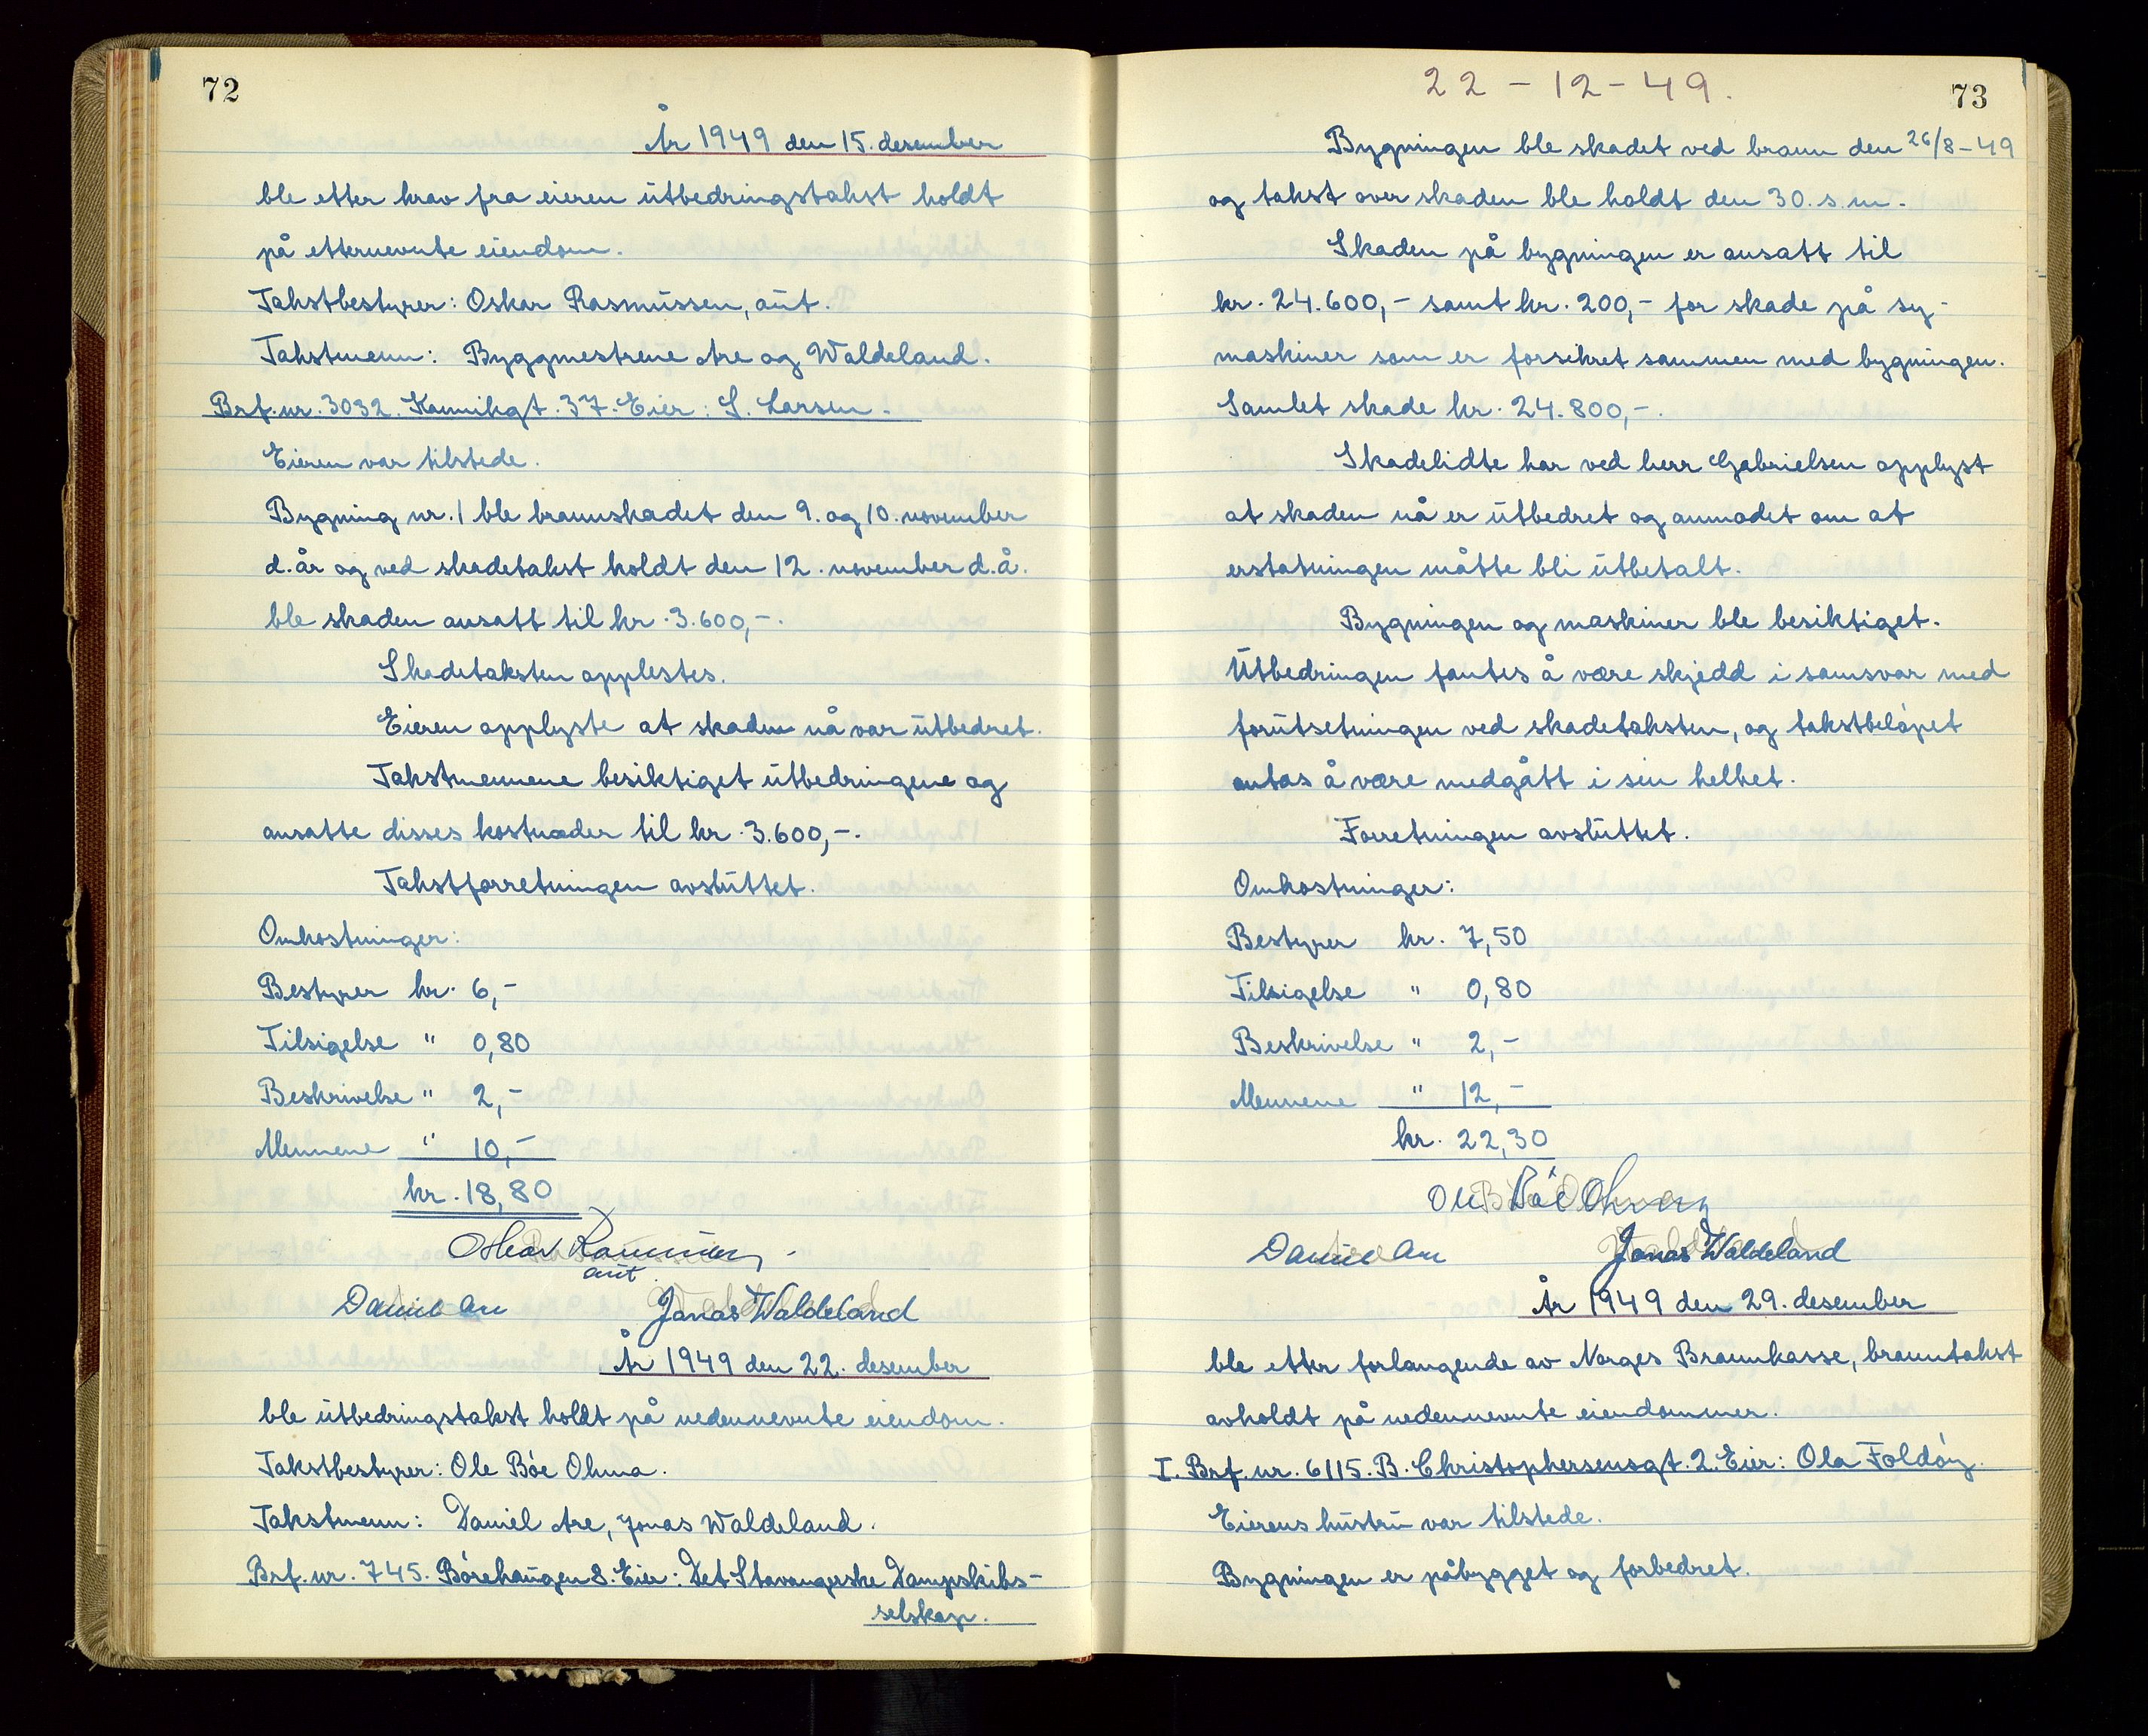 72
År 1949 den 15. desember
ble etter krav fra eieren utbedringstakst holdt
på etternevnte eiendom.
Takstbestyrer: Oskar Rasmussen, aut.
Takstmenn: Byggmestrene Are og Waldeland.
Brf. nr. 3032. Kannikgt. 37. Eier: S. Larsen.
Eieren var tilstede.
Bygning nr. 1 ble brannskadet den 9. og 10. november
d. år og ved skadetakst holdt den 12. november d.å.
ble skaden ansatt til kr. 3.600,-.
Skadetaksten opplestes.
Eieren opplyste at skaden nå var utbedret.
Takstmennene besiktiget utbedringene og
ansatte disses kostnader til kr. 3.600,-.
Takstforretningen avsluttet.
Omkostninger:
Bestyrer kr. 6,-
Tilsigelse " 0,80
Beskrivelse " 2,-
Mennene " 10,-
kr. 18,80
Oskar Rasmussen
aut
Daniel Are Jonas Waldeland
År 1949 den 22. desember
ble utbedringstakst holdt på nedennevnte eiendom.
Takstbestyrer: Ole Bóe Ohma.
Takstmenn: Daniel Are, Jonas Waldeland.
Brf. nr. 745. Bórehaugen 8. Eier: Det Stavangerske Dampskibs-
selskap.
22-12-49.
73
Bygningen ble skadet ved brann den 26/8-49
og takst over skaden ble holdt den 30. s.m.
Skaden på bygningen er ansatt til
kr. 24.600,- samt kr. 200,- for skade på sy-
maskiner som er forsikret sammen med bygningen.
Samlet skade kr. 24.800,-.
Skadelidte har ved herr Gabrielsen opplyst
at skaden nå er utbedret og anmodet om at
erstatningen måtte bli utbetalt.
Bygningen og maskiner ble besiktiget.
Utbedringen fantes å være skjedd i samsvar med
forutsetningen ved skadetaksten, og takstbelópet
antas å være medgått i sin helhet.
Forretningen avsluttet.
Omkostninger:
Bestyrer kr. 7,50
Tilsigelse " 0,80
Beskrivelse " 2,-
Mennene " 12,-
kr. 22,30
Ole Bóe Ohma
Daniel Are Jonas Waldeland
År 1949 den 29. desember
ble etter forlangende av Norges Brannkasse, branntakst
avholdt på nedennevnte eiendommer.
I. Brf. nr. 6115. B. Christophersensgt. 2. Eier: Ola Foldóy.
Eierens hustru var tilstede.
Bygningen er påbygget og forbedret.